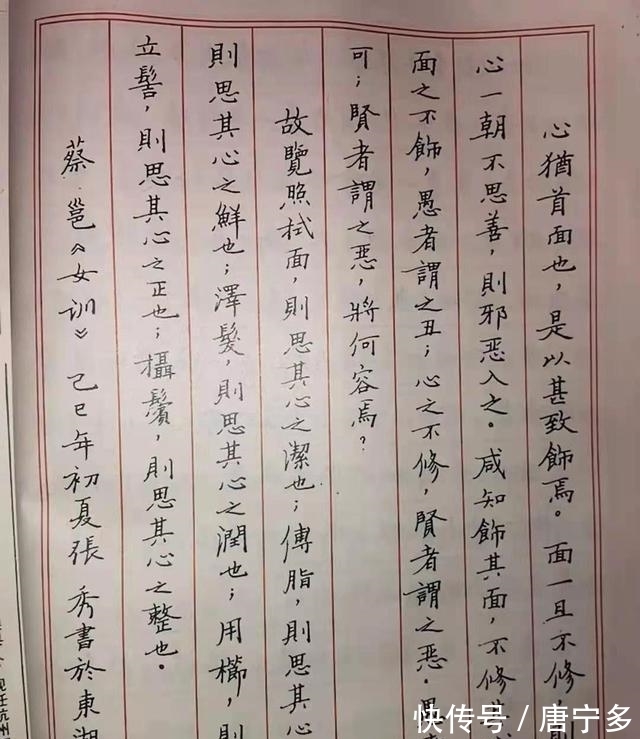 心猶首面也，是以甚致飾焉。面一旦不修
心一朝不思善，則邪惡入之。咸知飾其面，不修
面之不飾，愚者謂之丑；心之不修，賢者謂之惡。愚
可；賢者謂之惡，將何容焉？
故覽照拭面，則思其心之潔也；傅脂，則思其心
則思其心之鮮也；澤髮，則思其心之潤也；用櫛，則
立髻，則思其心之正也；攝鬢，則思其心之整也。
蔡邕《女训》己巳年初夏張秀書於東湖
现任杭州
快传号／唐宁多